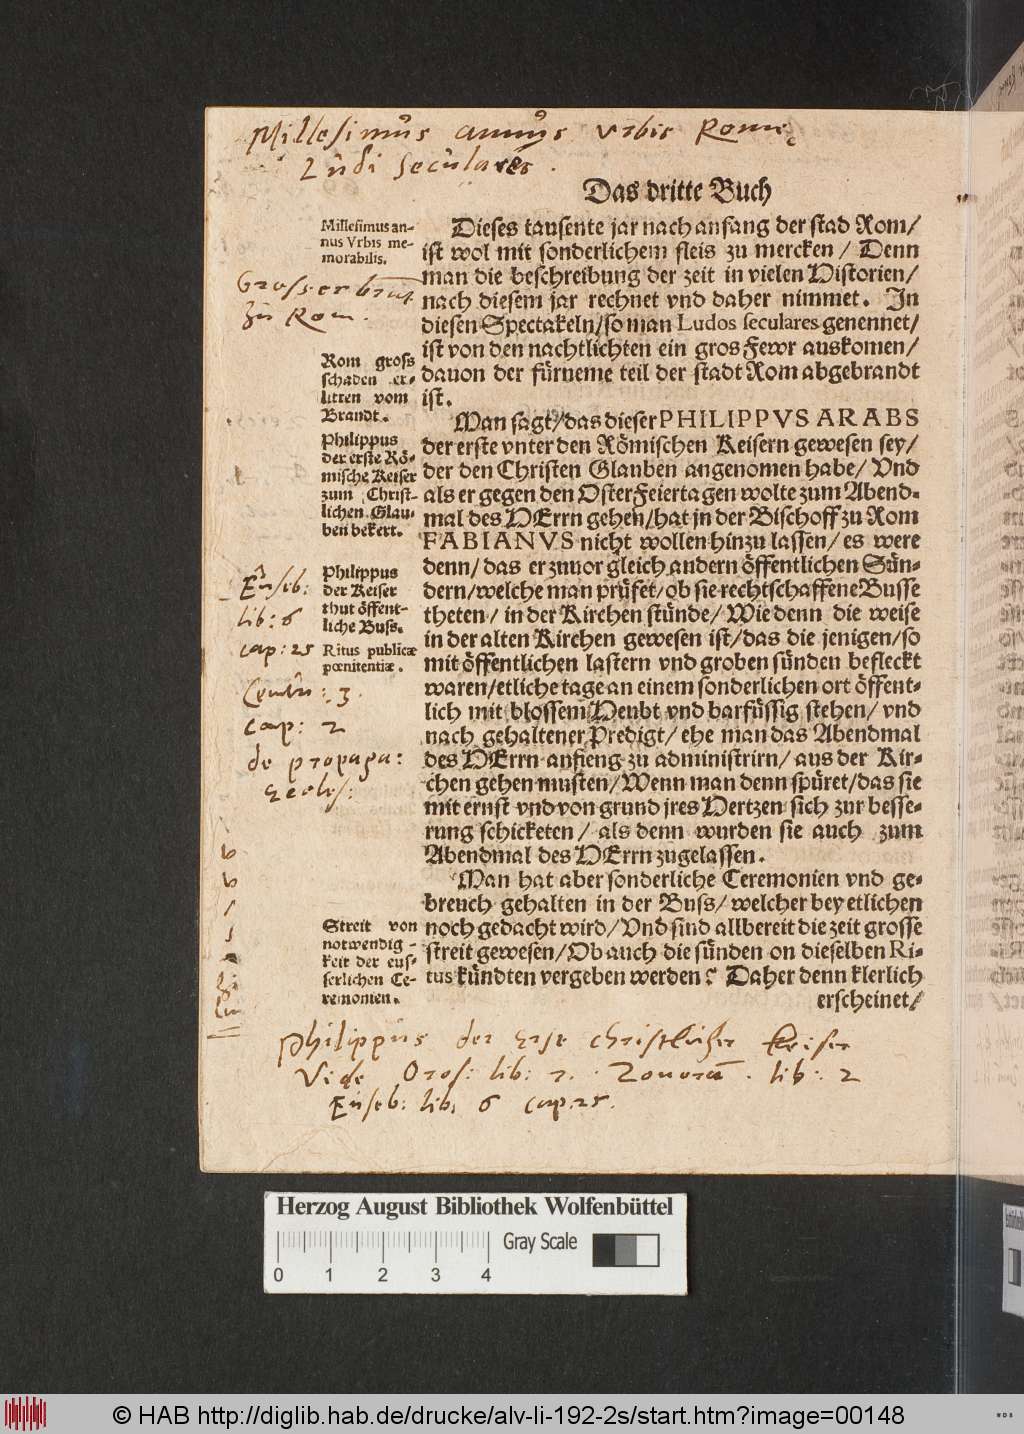 Millesimus annus Vrbis Rome
Ludi seculares.
Das dritte Buch
Millesimus an-
nus Vrbis me-
morabilis.
Grosser brant
zu Rom.
Rom gross
schaden er-
litten vom
Brandt.
Philippus
der erste Rö-
mische Keiser
zum Christ-
lichen Glau-
ben bekert.
Philippus
der Keiser
thut öffent-
liche Buss.
Ritus publicæ
pœnitentiæ.
Euseb:
lib: 6
cap: 25
Centu: 3.
cap: 2
de propaga:
Eccles:
Streit von
notwendig-
keit der eus-
serlichen Ce-
remonien.
Dieses tausente jar nach anfang der stad Rom/
ist wol mit sonderlichem fleis zu mercken/ Denn
man die beschreibung der zeit in vielen Historien/
nach diesem jar rechnet vnd daher nimmet. In
diesen Spectakeln/so man Ludos seculares genennet/
ist von den nachtlichten ein gros Fewr auskomen/
dauon der fürneme teil der stadt Rom abgebrandt
ist.
Man sagt/das dieser PHILIPPVS ARABS
der erste vnter den Römischen Keisern gewesen sey/
der den Christen Glauben angenomen habe/ Vnd
als er gegen den OsterFeiertagen wolte zum Abend-
mal des HErrn gehen/hat jn der Bischoff zu Rom
FABIANVS nicht wollen hinzu lassen/ es were
denn/ das er zuuor gleich andern öffentlichen Sün-
dern/welche man prüfet/ob sie rechtschaffene Busse
theten/ in der Kirchen stünde/ Wie denn die weise
in der alten Kirchen gewesen ist/das die jenigen/so
mit öffentlichen lastern vnd groben sünden befleckt
waren/etliche tage an einem sonderlichen ort öffent-
lich mit blossem Heubt vnd barfüssig stehen/ vnd
nach gehaltener Predigt/ ehe man das Abendmal
des HErrn anfieng zu administrirn/ aus der Kir-
chen gehen musten/Wenn man denn spüret/das sie
mit ernst vnd von grund jres Hertzen sich zur besse-
rung schicketen/ als denn wurden sie auch zum
Abendmal des HErrn zugelassen.
Man hat aber sonderliche Ceremonien vnd ge-
breuch gehalten in der Buss/ welcher bey etlichen
noch gedacht wird/ Vnd sind allbereit die zeit grosse
streit gewesen/ Ob auch die sünden on dieselben Ri-
tus kündten vergeben werden? Daher denn klerlich
erscheinet/
Philippus der Erste christlicher Keiser
Vide Oros: lib: 7. Zonoram. lib: 2
Euseb: lib: 6 cap: 25.
Herzog August Bibliothek Wolfenbüttel
0 1 2 3 4
Gray Scale
© HAB http://diglib.hab.de/drucke/alv-li-192-2s/start.htm?image=00148